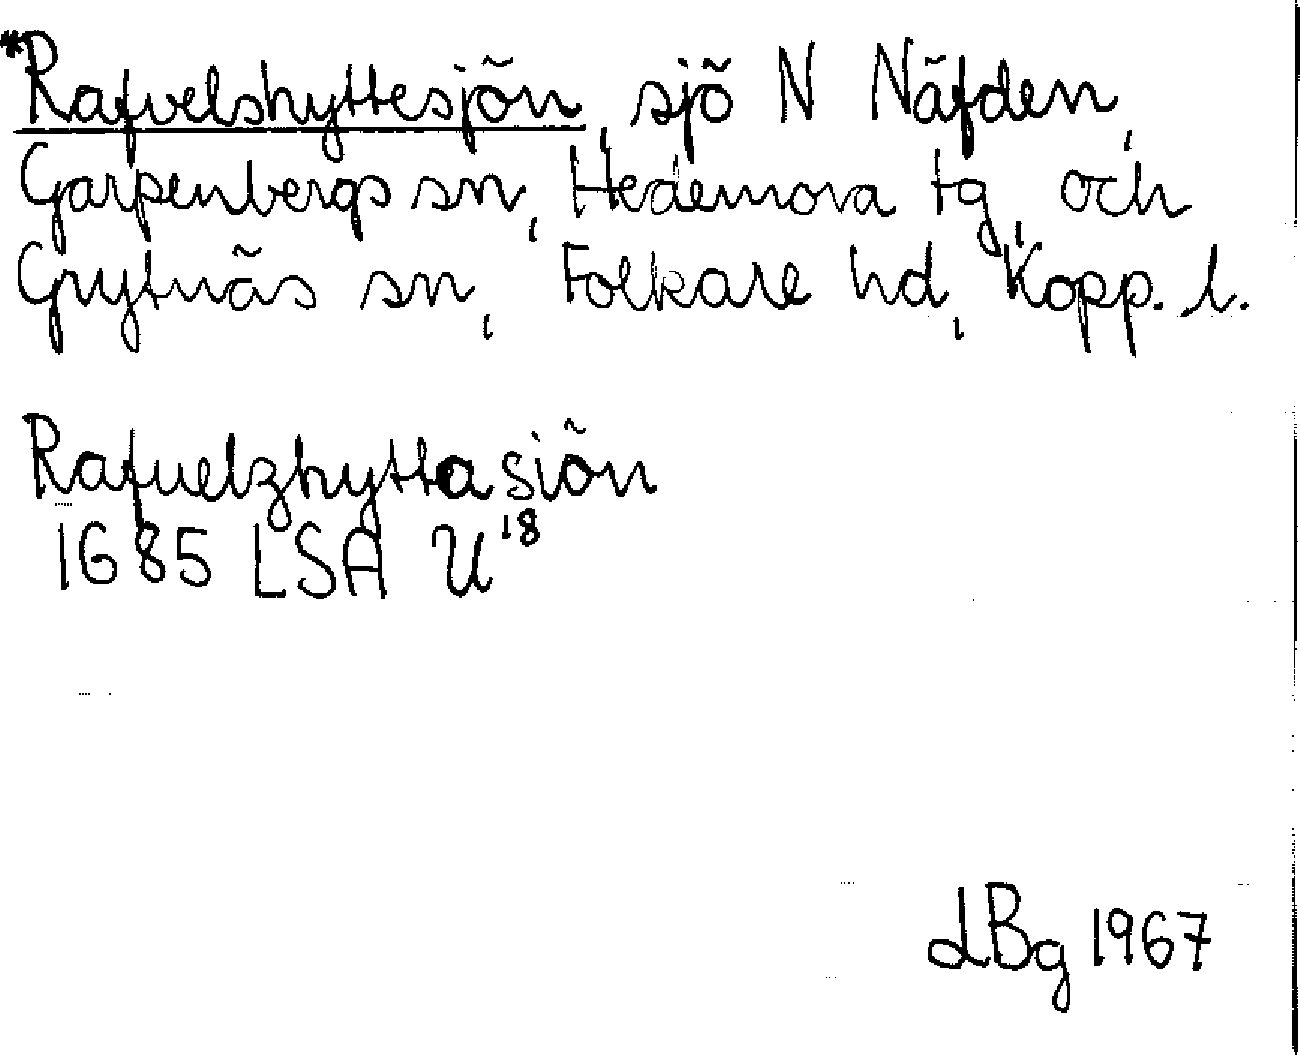 *Rafvelshyttesjön, sjö N Näfden,
Garpenbergs sn, Hedemora tg, och
Grytnäs sn, Folkare hd, Kopp. l.
Rafuelzhytta siön
1685 LSA U¹⁸
LBg 1967